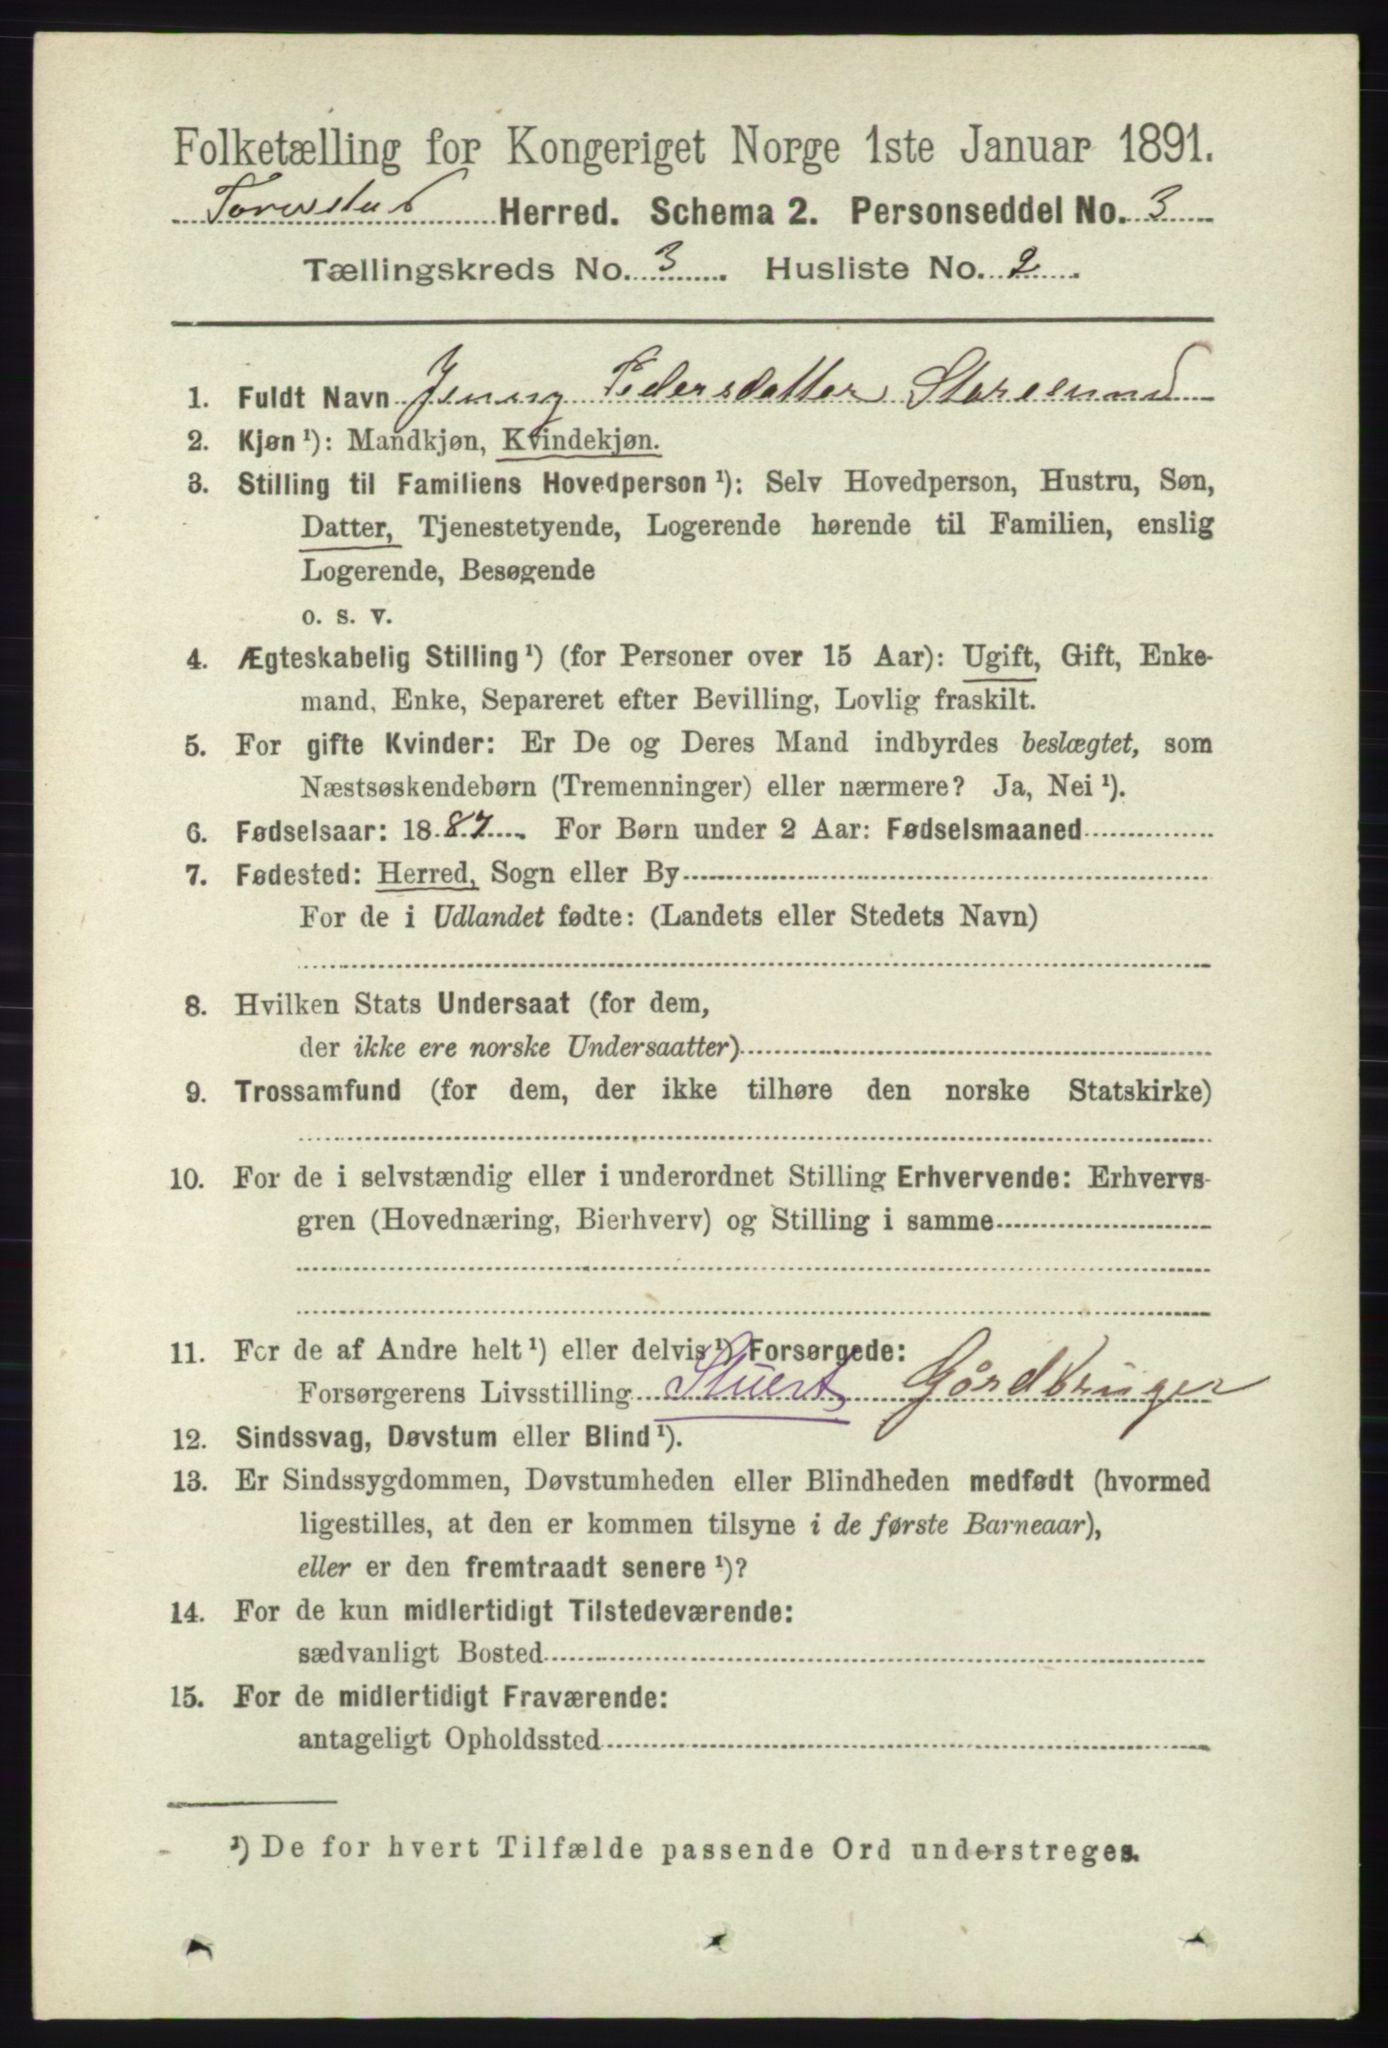 Folketælling for Kongeriget Norge 1ste Januar 1891.
Torvestad Herred. Schema 2. Personseddel No. 3
Tællingskreds No. 3. Husliste No. 2.
1. Fuldt Navn Jenny Pedersdatter Storesund
2. Kjøn ¹): Mandkjøn, Kvindekjøn.
3. Stilling til Familiens Hovedperson ¹): Selv Hovedperson, Hustru, Søn,
Datter, Tjenestetyende, Logerende hørende til Familien, enslig
Logerende, Besøgende
o. s. v.
4. Ægteskabelig Stilling ¹) (for Personer over 15 Aar): Ugift, Gift, Enke-
mand, Enke, Separeret efter Bevilling, Lovlig fraskilt.
5. For gifte Kvinder: Er De og Deres Mand indbyrdes beslægtet, som
Næstsøskendebørn (Tremenninger) eller nærmere? Ja, Nei ¹).
6. Fødselsaar: 1887. For Børn under 2 Aar: Fødselsmaaned
7. Fødested: Herred, Sogn eller By
For de i Udlandet fødte: (Landets eller Stedets Navn)
8. Hvilken Stats Undersaat (for dem,
der ikke ere norske Undersaatter)
9. Trossamfund (for dem, der ikke tilhøre den norske Statskirke)
10. For de i selvstændig eller i underordnet Stilling Erhvervende: Erhvervs-
gren (Hovednæring, Bierhverv) og Stilling i samme
11. For de af Andre helt ¹) eller delvis ¹) Forsørgede:
Forsørgerens Livsstilling Gårdbruger
12. Sindssvag, Døvstum eller Blind ¹).
13. Er Sindssygdommen, Døvstumheden eller Blindheden medfødt (hvormed
ligestilles, at den er kommen tilsyne i de første Barneaar),
eller er den fremtraadt senere ¹)?
14. For de kun midlertidigt Tilstedeværende:
sædvanligt Bosted
15. For de midlertidigt Fraværende:
antageligt Opholdssted
¹) De for hvert Tilfælde passende Ord understreges.